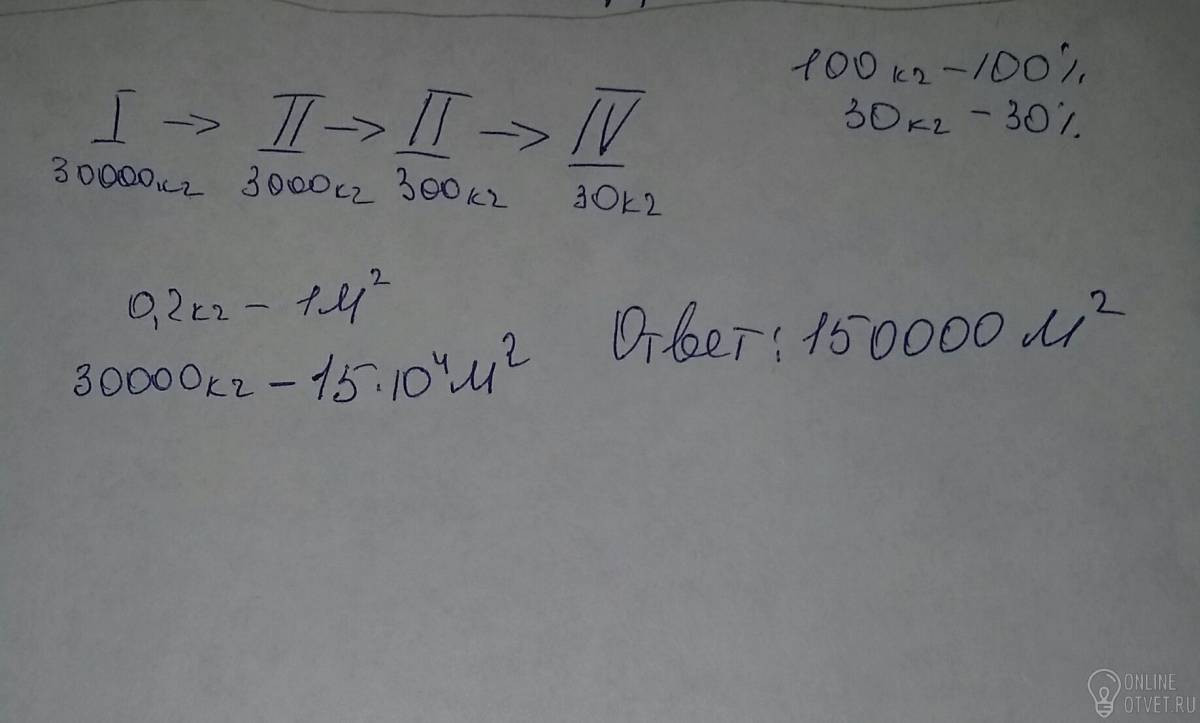 100кг - 100%
30кг - 30%
I → II → II → IV
30000кг 3000кг 300кг 30кг
0,2кг - 1м²
30000кг - 15·10⁴м²
Ответ: 150000 м²
ONLINE
OTVET.RU